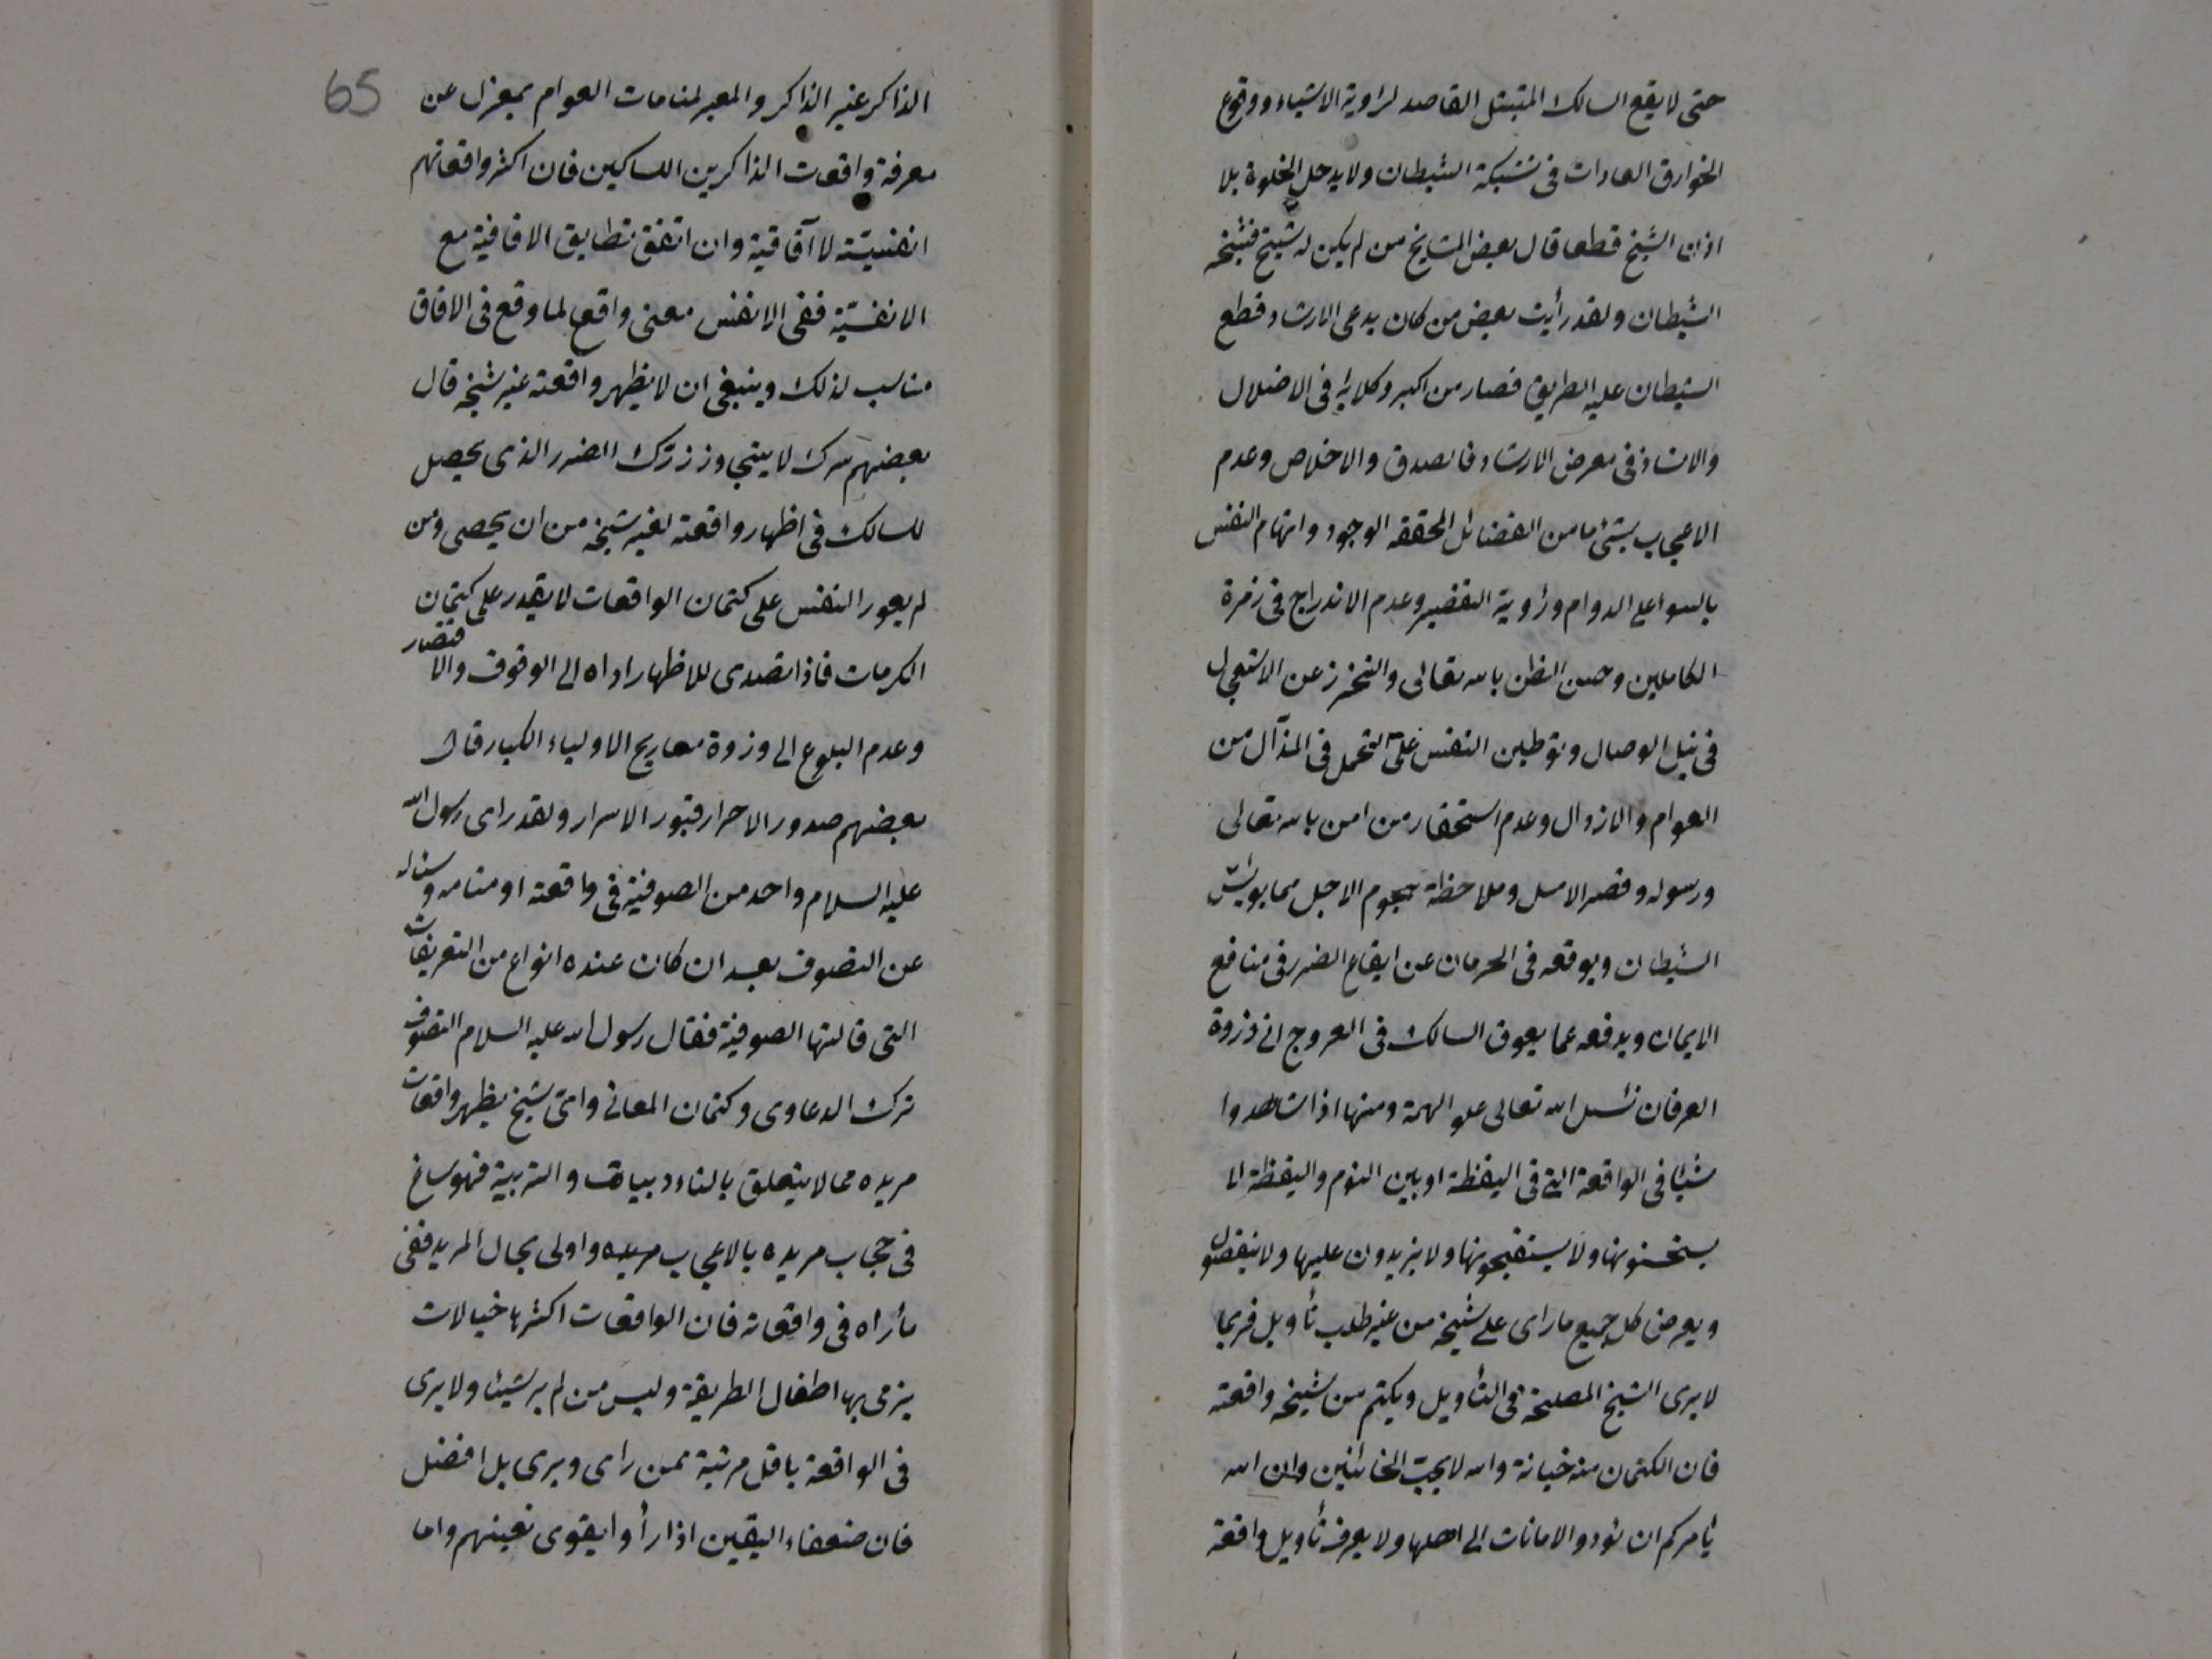 حتى لا يقع السالك المتبتل القاصد لراوية الاشياء ووقوع
الخوارق العادات في شبكة الشيطان ولا يدخل الخلوة بلا
اذن الشيخ قطعا قال بعض المشايخ من لم يكن له شيخ فشيخه
الشيطان ولقد رأيت بعض من كان يدعى الارشاد وقطع
الشيطان عليه الطريق فصار من اكبر وكلايه في الاضلال
والافساد في معرض الارشاد فالصدق والاخلاص وعدم
الاعجاب بشئ ما من الفضائل المحققة الوجود واتهام النفس
بالسوا على الدوام ورؤية التقصير وعدم الاندراج في زمرة
الكاملين وحسن الظن بالله تعالى والتحرز عن الاستعجال
في نيل الوصال وتوطين النفس على التحمل في المذال من
العوام والارذال وعدم استحقار من امن بالله تعالى
ورسوله وقصر الامل وملاحظة هجوم الاجل مما يويس
الشيطان ويوقعه في الحرمان عن ايقاع الضرر في منافع
الايمان ويدفعه عما يعوق السالك في العروج الى ذروة
العرفان نسئل الله تعالى علو الهمة ومنها اذا شاهدوا
شيئا في الواقعة التي في اليقظة او بين النوم واليقظة لا
يستحسنونها ولا يستقبحونها ولا يزيدون عليها ولا ينقصون
ويعرض كل جميع ما راى على شيخه من غير طلب تأويل فربما
لا يرى الشيخ المصلحة في التأويل ويكتم من شيخه واقعته
فان الكتمان منه خيانة والله لا يحب الخائنين وان الله
يأمركم ان تؤدوا الامانات الى اهلها ولا يعرف تأويل واقعة
65
الذاكر غير الذاكر والمعبر لمنامات العوام بمعزل عن
معرفة واقعات الذاكرين السالكين فان اكثر واقعاتهم
انفسيّة لا آفاقية وان اتفق تطابق الافاقية مع
الانفسيّة ففى الانفس معنى واقع لما وقع في الافاق
مناسب لذلك وينبغى ان لا يظهر واقعته غير شيخه قال
بعضهم سرك لا يتجاوز زرك الضرر الذى يحصل
للسالك في اظهار واقعته لغير شيخه من ان يحصى ومن
لم يعود النفس على كتمان الواقعات لا يقدر على كتمان
الكرمات فاذا تصدى للاظهار اداه الى الوقوف والاقتصار
وعدم البلوغ الى وزوة معاريج الاولياء الكبار قال
بعضهم صدور الاحرار قبور الاسرار ولقد راى رسول الله
عليه السلام واحد من الصوفية في واقعته او منامه وسئاله
عن التصوف بعد ان كان عنده انواع من التعريفات
التى قالتها الصوفية فقال رسول الله عليه السلام التصوف
ترك الدعاوى وكتمان المعانى واىّ شيخ يظهر واقعات
مريده مما لا يتعلق بالتاءديبات والتربية فهو ساغ
في حجاب مريده بالاعجاب مريده واولى بحال المريد ففى
مأراه في واقعاته فان الواقعات اكثرها خيالات
يرمى بها اطفال الطريقة وليس من لم ير شيئا ولا يرى
في الواقعة باقل مرتبة ممن راى ويرى بل افضل
فان ضعفاء اليقين اذا رأوا يقوى نعينهم واما